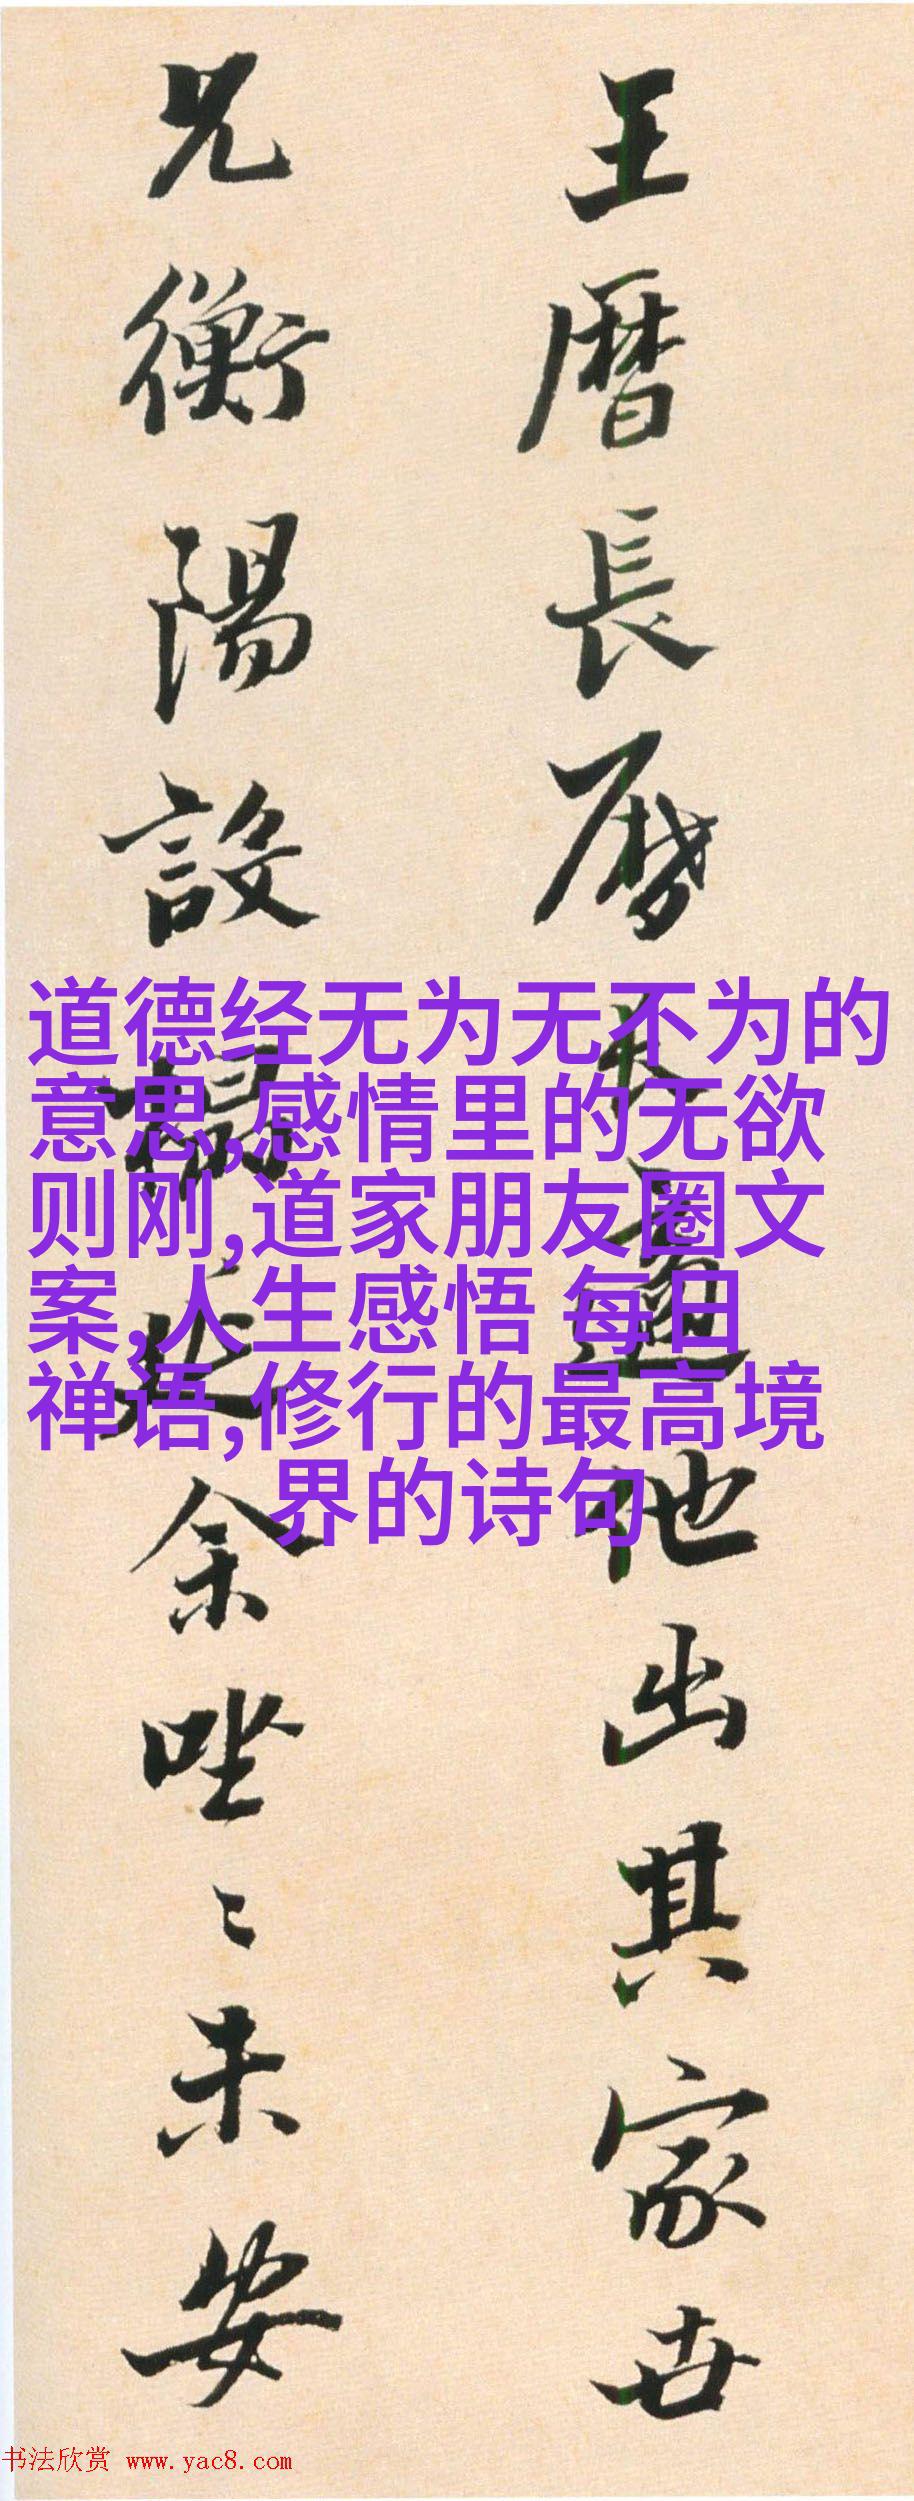 王曆長曆
他出其家世
兄衡陽設榻延余唑〻未安
道德经无为无不为的
意思,感情里的无欲
则刚,道家朋友圈文
案,人生感悟 每日
禅语,修行的最高境
界的诗句
书法欣赏 www.yac8.com